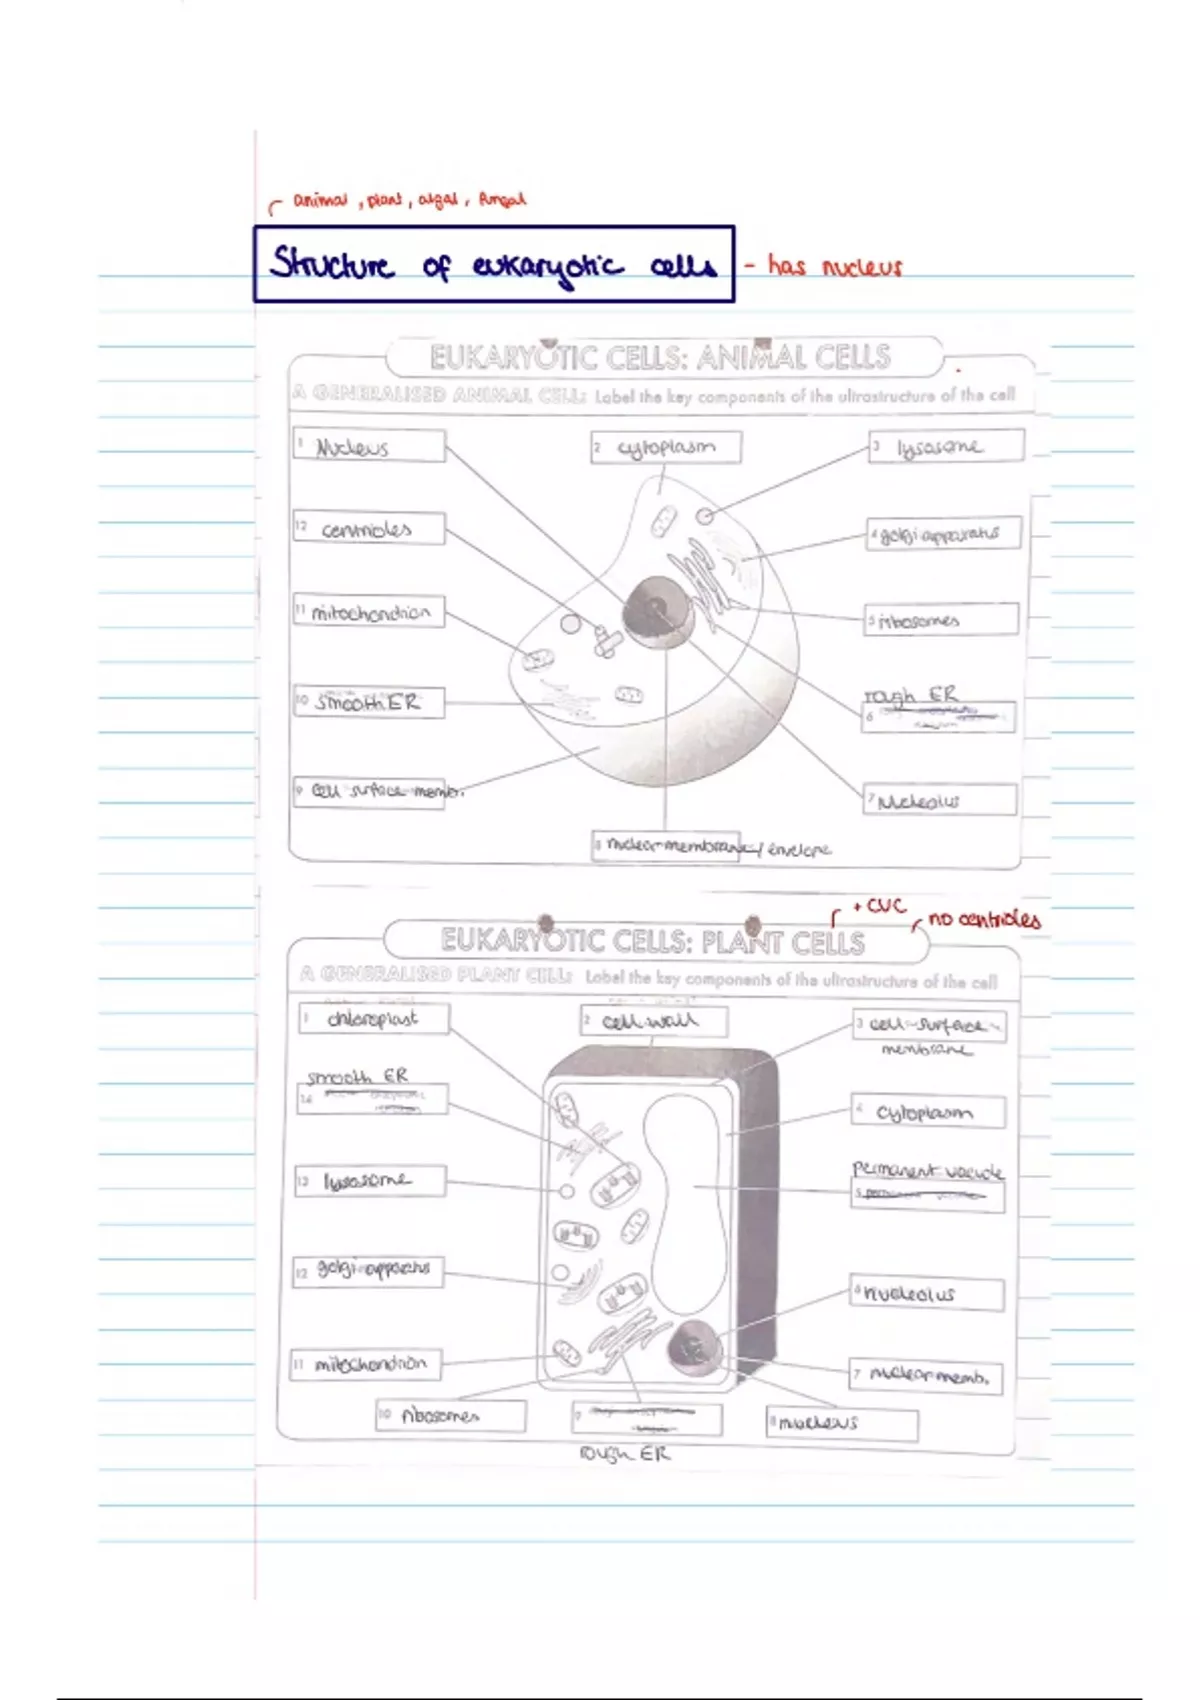 animal, plant, algal, fungal
Structure of eukaryotic cells - has nucleus
EUKARYOTIC CELLS: ANIMAL CELLS
A GENERALISED ANIMAL CELL: Label the key components of the ultrastructure of the cell
1 Nucleus
2 cytoplasm
3 lysosome
12 centrioles
4 golgi apparatus
11 mitochondrion
5 ribosomes
10 smooth ER
rough ER
6
9 cell surface memb.
7 Nucleolus
8 nuclear membrane / envelope
+ CVC
no centrioles
EUKARYOTIC CELLS: PLANT CELLS
A GENERALISED PLANT CELL: Label the key components of the ultrastructure of the cell
1 chloroplast
2 cell wall
3 cell-surface-
membrane
smooth ER
14
4 cytoplasm
13 lysosome
permanent vacuole
5 permanent
12 golgi apparatus
6 nucleolus
11 mitochondrion
7 nuclear memb.
10 ribosomes
9
8 nucleus
rough ER